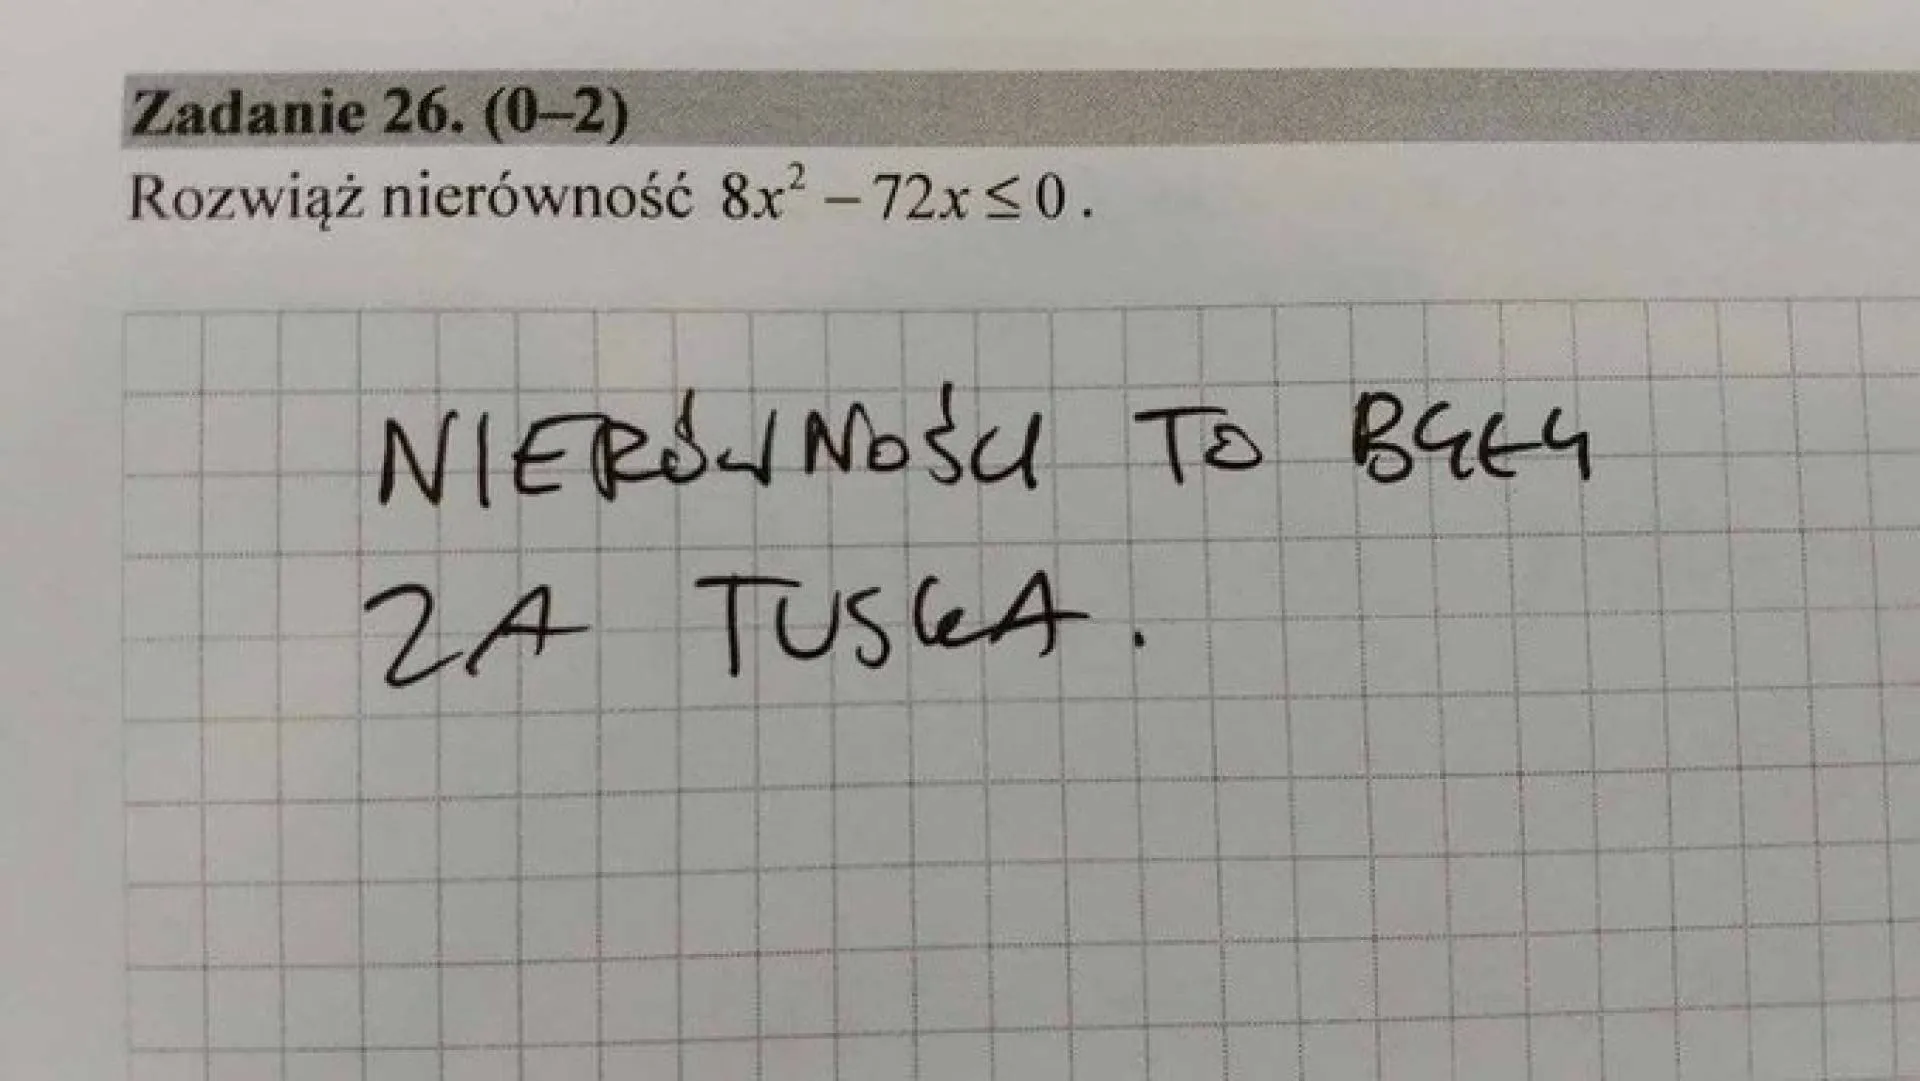 Zadanie 26. (0–2)
Rozwiąż nierówność 8x² – 72x ≤ 0.
NIERÓWNOŚCI TO BYŁY
ZA TUSKA.